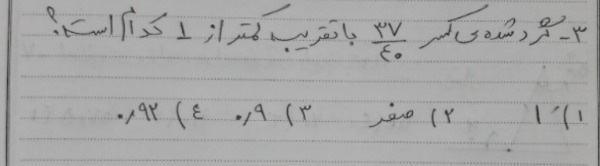 ۳- گرد شده‌ی کسر ۳۷/۴۰ با تقریب کمتر از ۱ کدام است؟
۱) ۱ ۲) صفر ۳) ۰٫۹ ۴) ۰٫۹۲